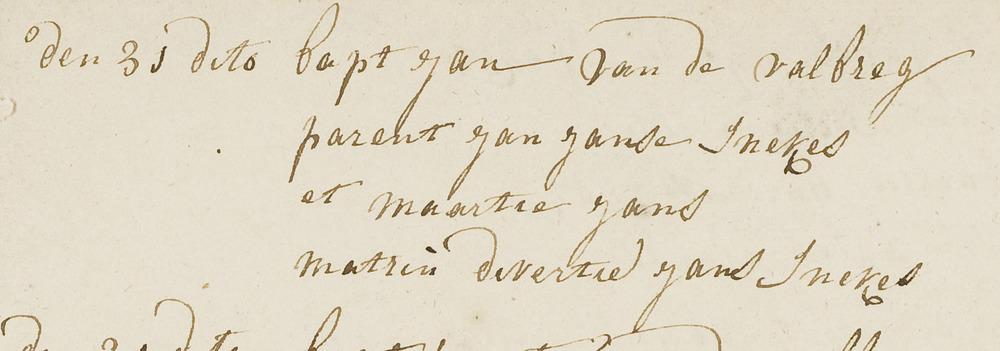 den 31 dito bapt yan van de valbreg
parent yan yanse Inekes
et maartie yans
matrin divertie yans Inekes